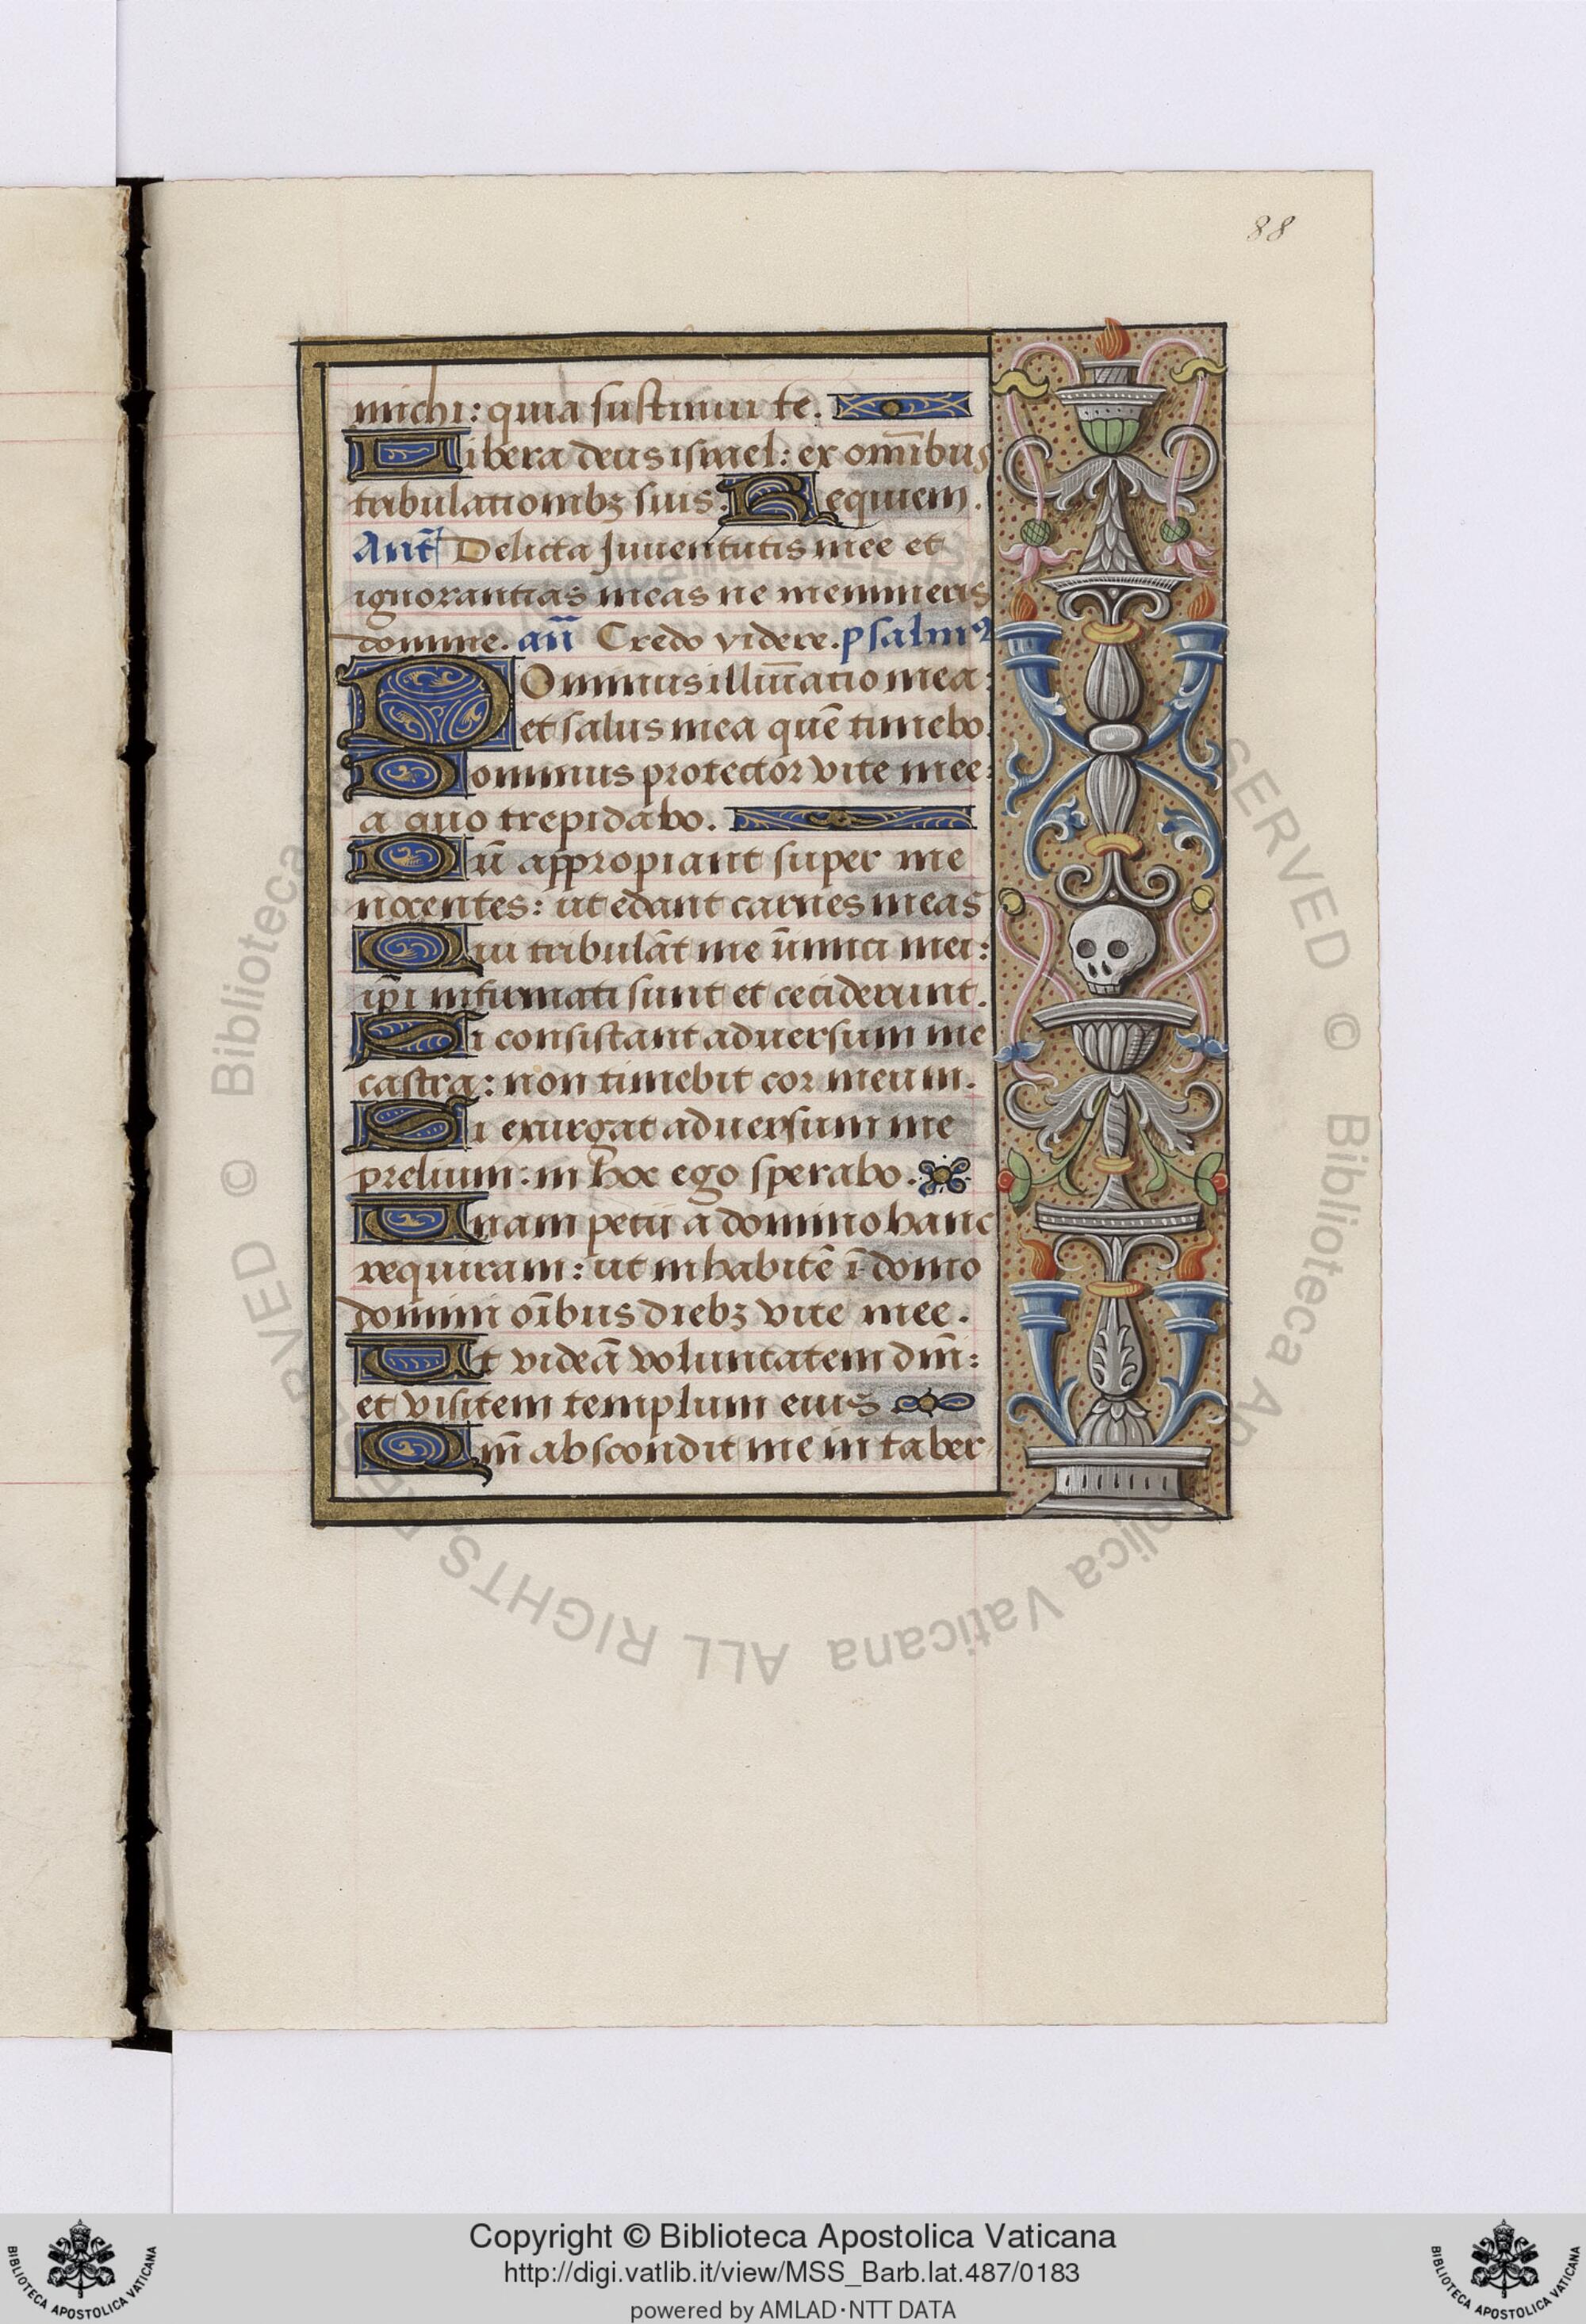 88
michi: quia sustinui te.
Libera deus israel: ex om̄ibus
tribulationibꝫ suis. Requiem.
Ant̄ Delicta Juuentutis mee et
ignorantias meas ne memineris
domine. an̄ Credo videre. psalmꝰ
DOminus illūīatio mea:
et salus mea quē timebo.
Dominus protector vite mee:
a quo trepidabo.
Dū appropiant super me
nocentes: ut edant carnes meas
Qui tribulāt me īimici mei:
ip̄i infirmati sunt et ceciderunt.
Si consistant aduersum me
castra: non timebit cor meum.
Si exurgat aduersum me
prelium: in hoc ego sperabo.
Unam petii a domino hanc
requiram: ut inhabitē ī domo
domini oībus diebꝫ vite mee.
Ut videā voluntatem dn̄i:
et visitem templum eius
Qm̄ abscondit me in taber
Copyright © Biblioteca Apostolica Vaticana
http://digi.vatlib.it/view/MSS_Barb.lat.487/0183
powered by AMLAD·NTT DATA
BIBLIOTECA APOSTOLICA VATICANA
BIBLIOTECA APOSTOLICA VATICANA
© Biblioteca Apostolica Vaticana ALL RIGHTS RESERVED